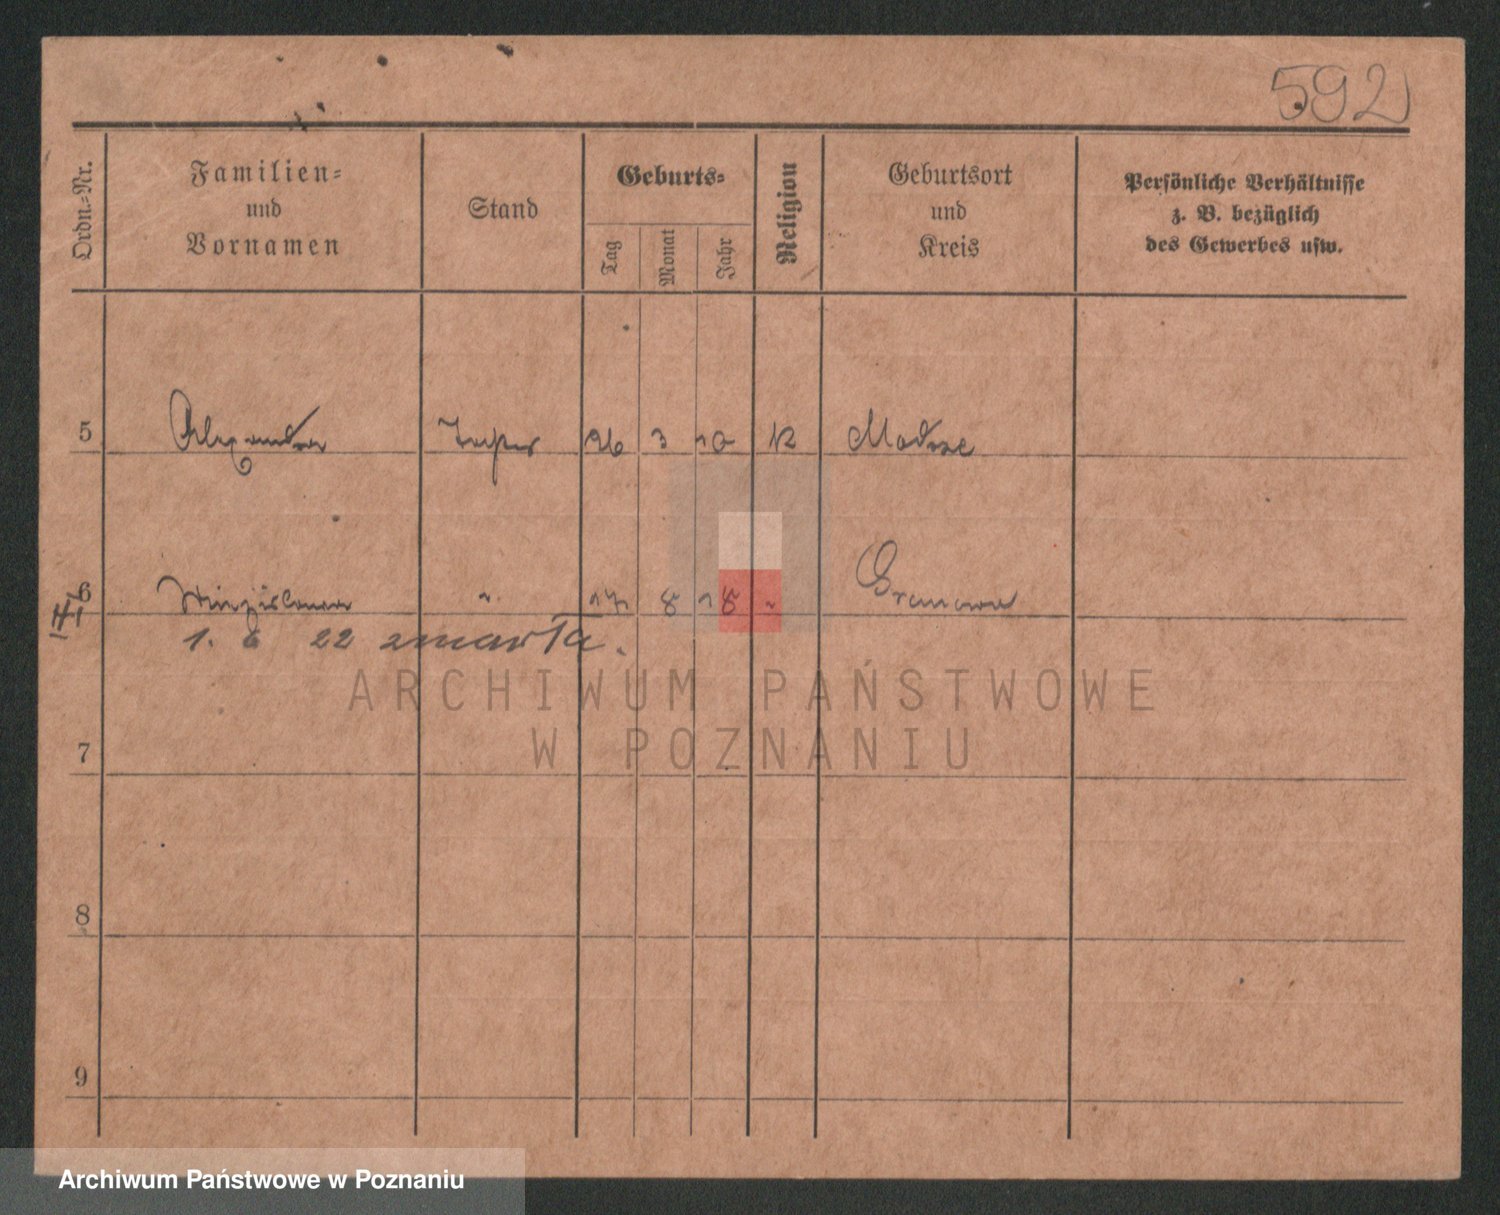 592
Ordn.-Nr.
Familien-
und
Vornamen
Stand
Geburts-
Tag
Monat
Jahr
Religion
Geburtsort
und
Kreis
Persönliche Verhältnisse
z. B. bezüglich
des Gewerbes usw.
5 26 3 10 K Modrze
6 " 17 8 18 " Granowo
1. 6 22 zmarła.
ARCHIWUM PAŃSTWOWE
W POZNANIU
7
8
9
Archiwum Państwowe w Poznaniu